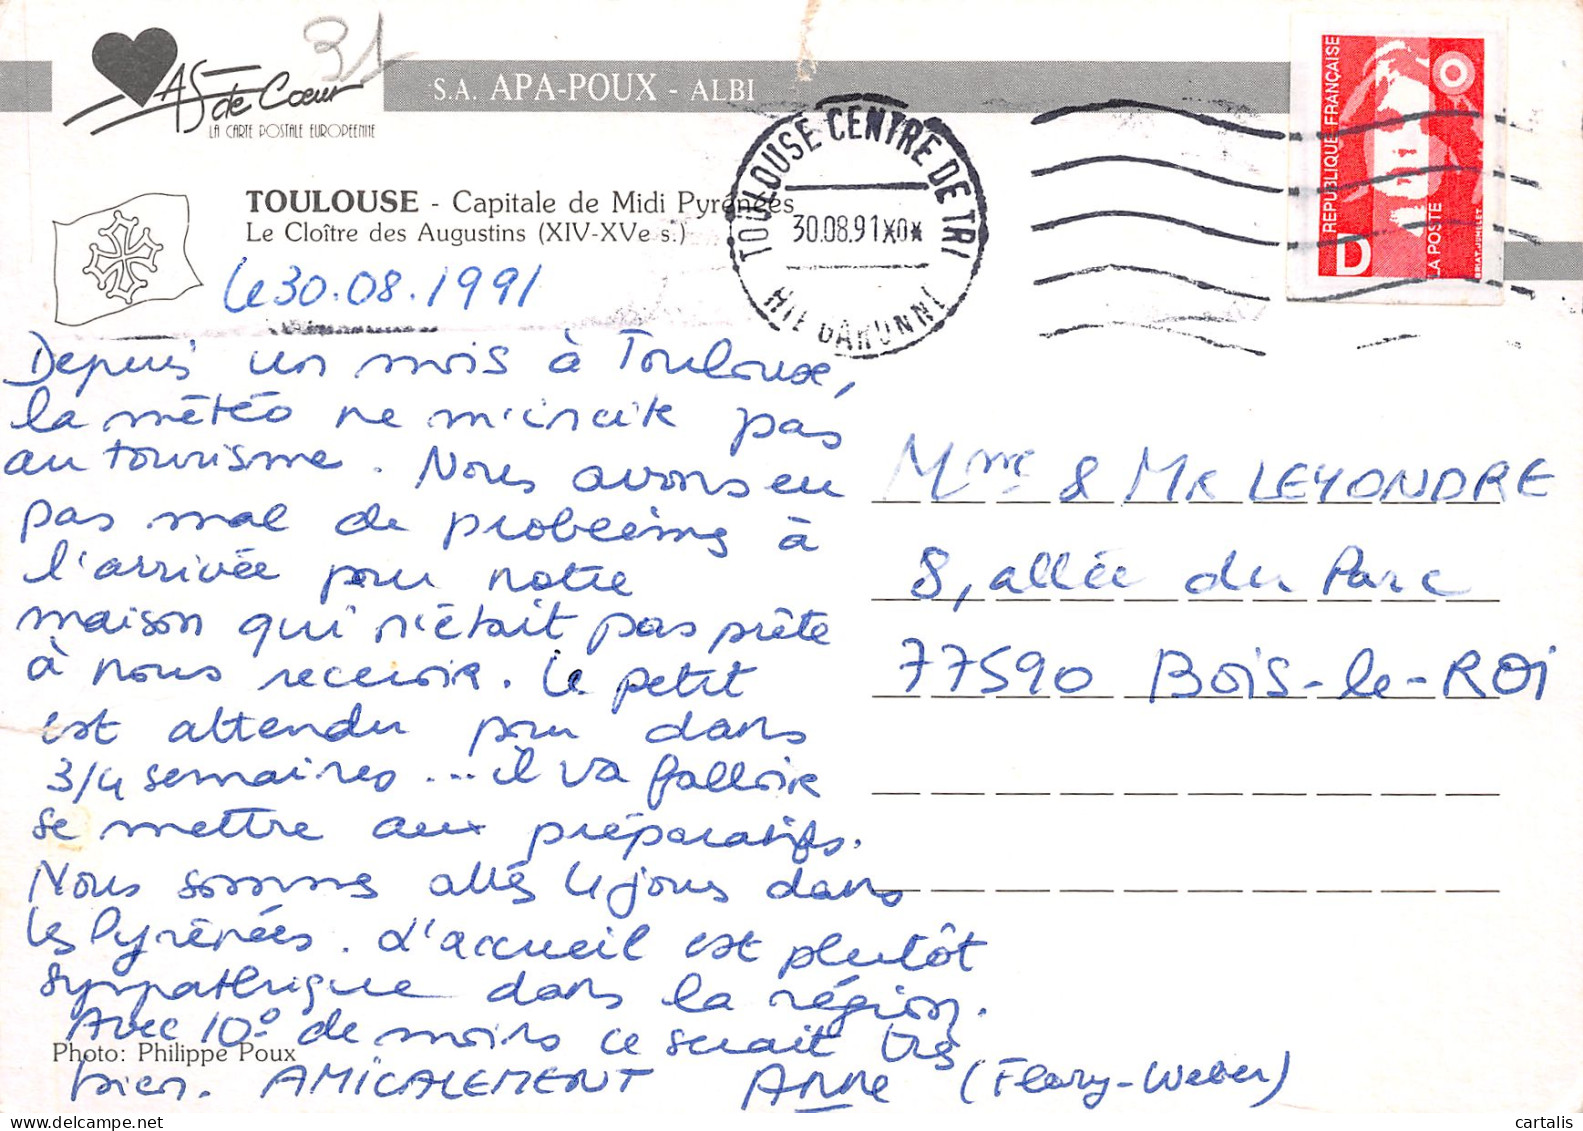 31
AS de Coeur
LA CARTE POSTALE EUROPEENNE
S.A. APA-POUX - ALBI
TOULOUSE CENTRE DE TRI
30.08.91
HTE GARONNE
REPUBLIQUE FRANÇAISE
D
LA POSTE
BRIAT-JUMELET
TOULOUSE - Capitale de Midi Pyrénées
Le Cloître des Augustins (XIV-XVe s.)
Le 30.08.1991
Depuis un mois à Toulouse,
la météo ne m'incite pas
au tourisme. Nous avons eu
pas mal de problèmes à
l'arrivée pour notre
maison qui n'était pas prête
à nous recevoir. Le petit
est attendu pour dans
3/4 semaines ... il va falloir
se mettre aux préparatifs.
Nous sommes allés 4 jours dans
les Pyrénées. L'accueil est plutôt
sympathique dans la région.
Avec 10° de moins ce serait très
bien. AMICALEMENT ANNE (Flary-Weber)
Photo: Philippe Poux
Mme & MR LEYONDRE
8, allée du Parc
77590 BOIS-le-ROI
cartalis